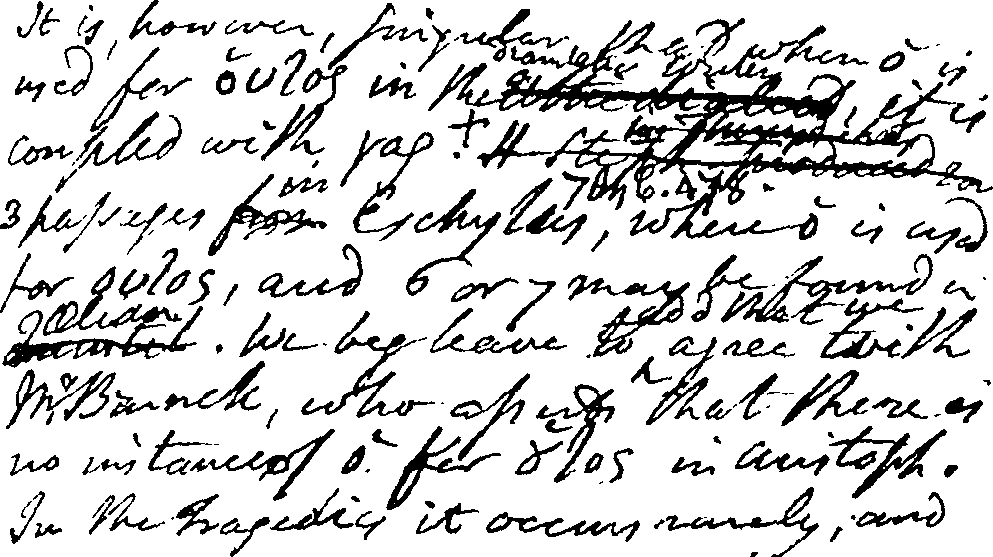 It is, however, singular that when ὁ is
dramatic writers
used for οὗτος in the, it is
coupled with γαρ. +
in 746.478.
3 passages from Eschylus, where ὁ is used
for οὗτος, and 6 or 7 may be found in
add that we
. We beg leave to ^ agree with
Mr Brunck, who asserts that there is
no instance of ὁ for οὗτος in Aristoph.
In the Tragedies it occurs rarely, and